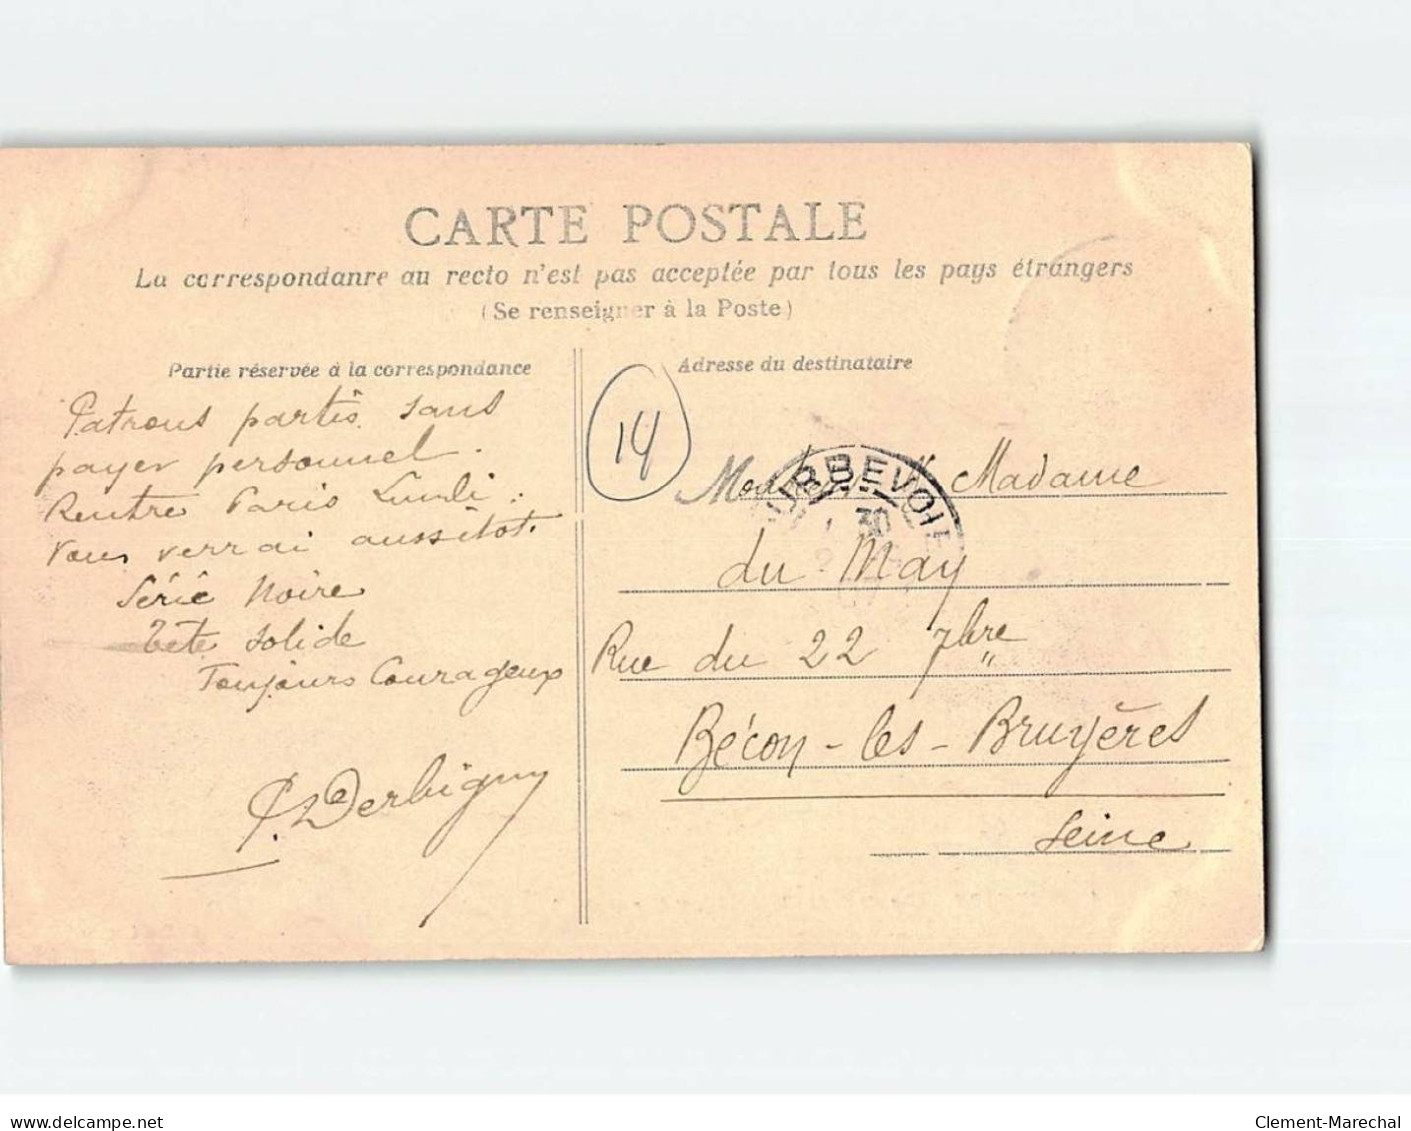 CARTE POSTALE
La correspondanre au recto n'est pas acceptée par tous les pays étrangers
(Se renseigner à la Poste)
Partie réservée à la correspondance
Patrons partis sans
payer personnel.
Rentre Paris Lundi.
Vous verrai aussitôt.
Série Noire
Tete solide
Toujours Courageux
Derbigny
Adresse du destinataire
14
COURBEVOIE
30
Monsieur & Madame
du May
Rue du 22 7bre
Bécon-les-Bruyères
Seine
www.delcampe.net
Clement-Marechal